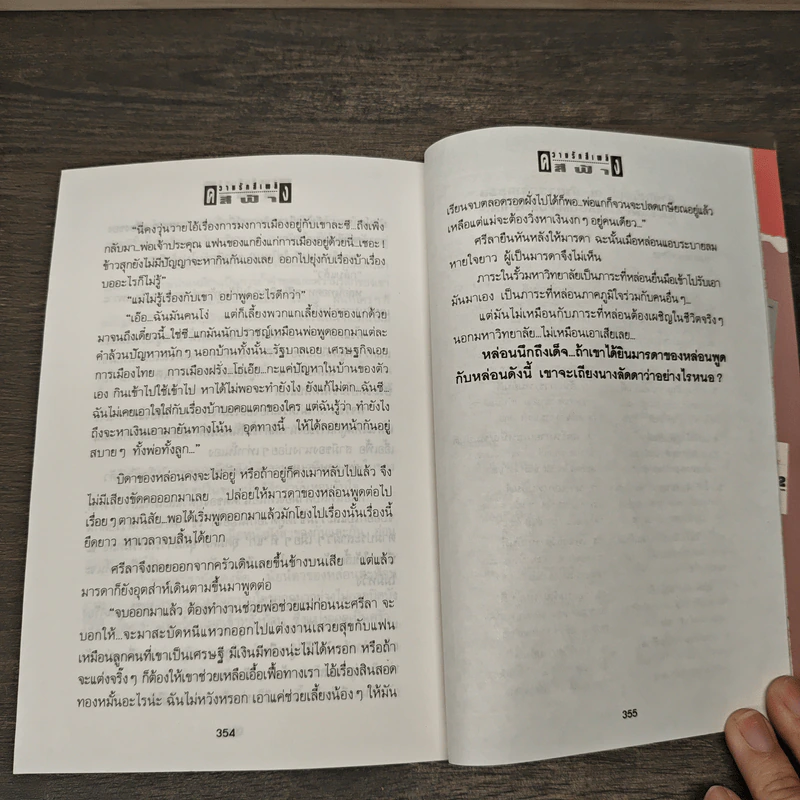 ความรักสีเพลิง
สีฟาง
"นี่คงวุ่นวายไอ้เรื่องการมงการเมืองอยู่กับเขาละซี...ถึงเพิ่ง
กลับมา...พ่อเจ้าประคุณ แฟนของแกยิงแก่การเมืองอยู่ด้วยนี่...เชอะ!
ข้าวสุกยังไม่มีปัญญาจะหากินกันเองเลย ออกไปยุ่งกับเรื่องบ้าเรื่อง
บออะไรก็ไม่รู้"
"แม่ไม่รู้เรื่องกับเขา อย่าพูดอะไรดีกว่า"
"เอ๊อ...ฉันมันคนโง่ แต่ก็เลี้ยงพวกแกเลี้ยงพ่อของแกด้วย
มาจนถึงเดี๋ยวนี้...ใช่ซี...แกมันนักปราชญ์เหมือนพ่อพูดออกมาแต่ละ
คำล้วนปัญหาหนัก ๆ นอกบ้านทั้งนั้น...รัฐบาลเอย เศรษฐกิจเอย
การเมืองไทย การเมืองฝรั่ง...โธ่เอ๊ย...กะแค่ปัญหาในบ้านของตัว
เอง กินเข้าไปใช้เข้าไป หาได้ไม่พอจะทำยังไง ยังแก้ไม่ตก...ฉันซี...
ฉันไม่เคยเอาใจใส่กับเรื่องบ้าบอคอแตกของใคร แต่ฉันรู้ว่า ทำยังไง
ถึงจะหาเงินเอามายันทางโน้น อุดทางนี้ ให้ได้ลอยหน้ากันอยู่
สบาย ๆ ทั้งพ่อทั้งลูก..."
บิดาของหล่อนคงจะไม่อยู่ หรือถ้าอยู่ก็คงเมาหลับไปแล้ว จึง
ไม่มีเสียงขัดคอออกมาเลย ปล่อยให้มารดาของหล่อนพูดต่อไป
เรื่อย ๆ ตามนิสัย...พอได้เริ่มพูดออกมาแล้วมักโยงไปเรื่องนั้นเรื่องนี้
ยืดยาว หาเวลาจบสิ้นได้ยาก
ศรีลาจึงถอยออกจากครัวเดินเลยขึ้นข้างบนเสีย แต่แล้ว
มารดาก็ยังอุตส่าห์เดินตามขึ้นมาพูดต่อ
"จบออกมาแล้ว ต้องทำงานช่วยพ่อช่วยแม่ก่อนนะศรีลา จะ
บอกให้...จะมาสะบัดหนีแหวกออกไปแต่งงานเสวยสุขกับแฟน
เหมือนลูกคนที่เขาเป็นเศรษฐี มีเงินมีทองน่ะไม่ได้หรอก หรือถ้า
จะแต่งจริ๊ง ๆ ก็ต้องให้เขาช่วยเหลือเอื้อเฟื้อทางเรา ไอ้เรื่องสินสอด
ทองหมั้นอะไรน่ะ ฉันไม่หวังหรอก เอาแค่ช่วยเลี้ยงน้อง ๆ ให้มัน
354
ความรักสีเพลิง
สีฟาง
เรียนจบตลอดรอดฝั่งไปได้ก็พอ...พ่อแกก็จวนจะปลดเกษียณอยู่แล้ว
เหลือแต่แม่จะต้องวิ่งหาเงินงก ๆ อยู่คนเดียว..."
ศรีลายืนหันหลังให้มารดา ฉะนั้นเมื่อหล่อนแอบระบายลม
หายใจยาว ผู้เป็นมารดาจึงไม่เห็น
ภาระในรั้วมหาวิทยาลัยเป็นภาระที่หล่อนยื่นมือเข้าไปรับเอา
มันมาเอง เป็นภาระที่หล่อนภาคภูมิใจร่วมกับคนอื่น ๆ...
แต่มันไม่เหมือนกับภาระที่หล่อนต้องเผชิญในชีวิตจริง ๆ
นอกมหาวิทยาลัย...ไม่เหมือนเอาเสียเลย...
หล่อนนึกถึงเด็จ...ถ้าเขาได้ยินมารดาของหล่อนพูด
กับหล่อนดังนี้ เขาจะเถียงนางลัดดาว่าอย่างไรหนอ?
355